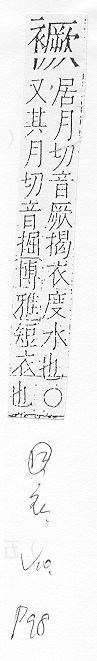 居月切音厥揭衣度水也○
又其月切音掘博雅短衣也
V10.
P98